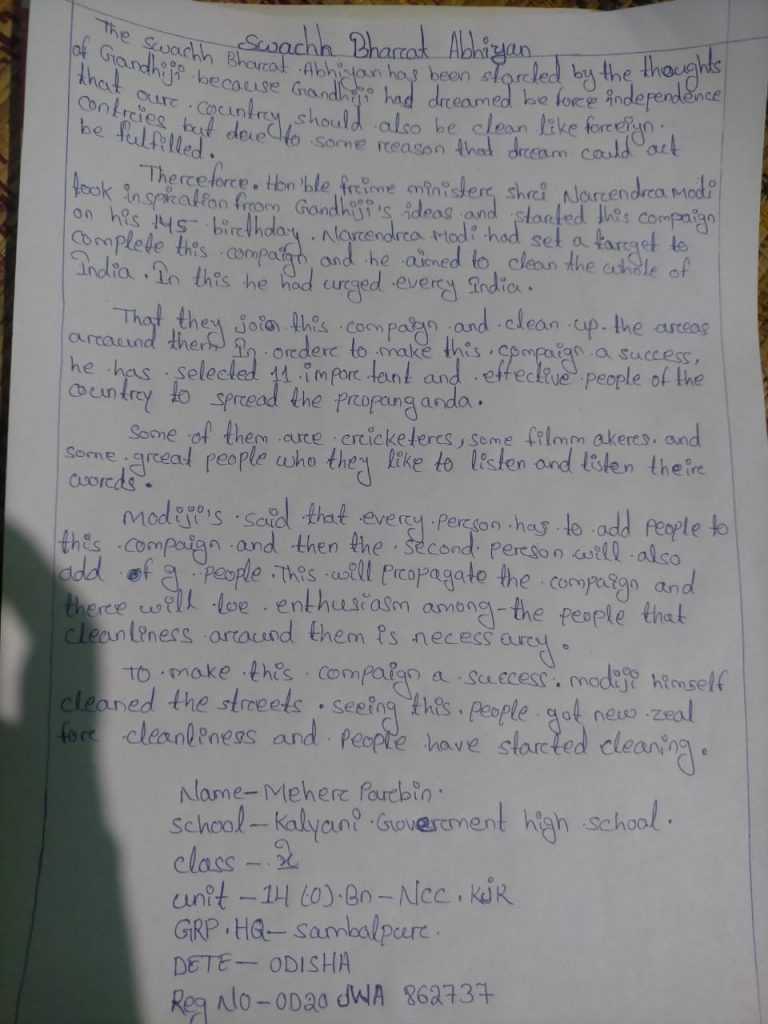 Swachh Bharcat Abhiyan
The Swachh Bharcat Abhiyan has been starcted by the thoughts
of Gandhiji because Gandhiji had drceamed be force independence
that ourc country should also be clean like forceign
contrcies but deue to some rceason that drceam could act
be fulfilled.
Thercefore. Hon'ble frcime ministerc shrci Narcendrca Modi
took inspircation frcom Gandhiji's ideas and started this compaign
on his 145 bircthday. Narcendrca Modi had set a tarcget to
complete this compaign and he aimed to clean the whole of
India. In this he had urcged evercy India.
That they join this compaign and clean up the arceas
arcaund them In orcderc to make this compaign a success,
he has selected 11 imporc tant and effective people of the
countrcy to sprcead the prcopanganda.
Some of them arce crcicketercs, some filmm akercs. and
some grceat people who they like to listen and listen theirc
worcds.
Modiji's said that evercy percson has to add people to
this compaign and then the second percson will also
add of 9 people. This will prcopagate the compaign and
therce will be enthusiasm among-the people that
cleanliness arcaund them is necess arcy.
To make this compaign a success. modiji himself
cleaned the strceets. seeing this people got new zeal
forc cleanliness and people have starcted cleaning.
Name-Meherc Parcbin.
school-Kalyani Govercment high school.
class - X
unit - 14 (O) Bn-NCC. KJR
GRP. HQ- sambalpurc.
DETE- ODISHA
Reg NO-OD20 JWA 862737